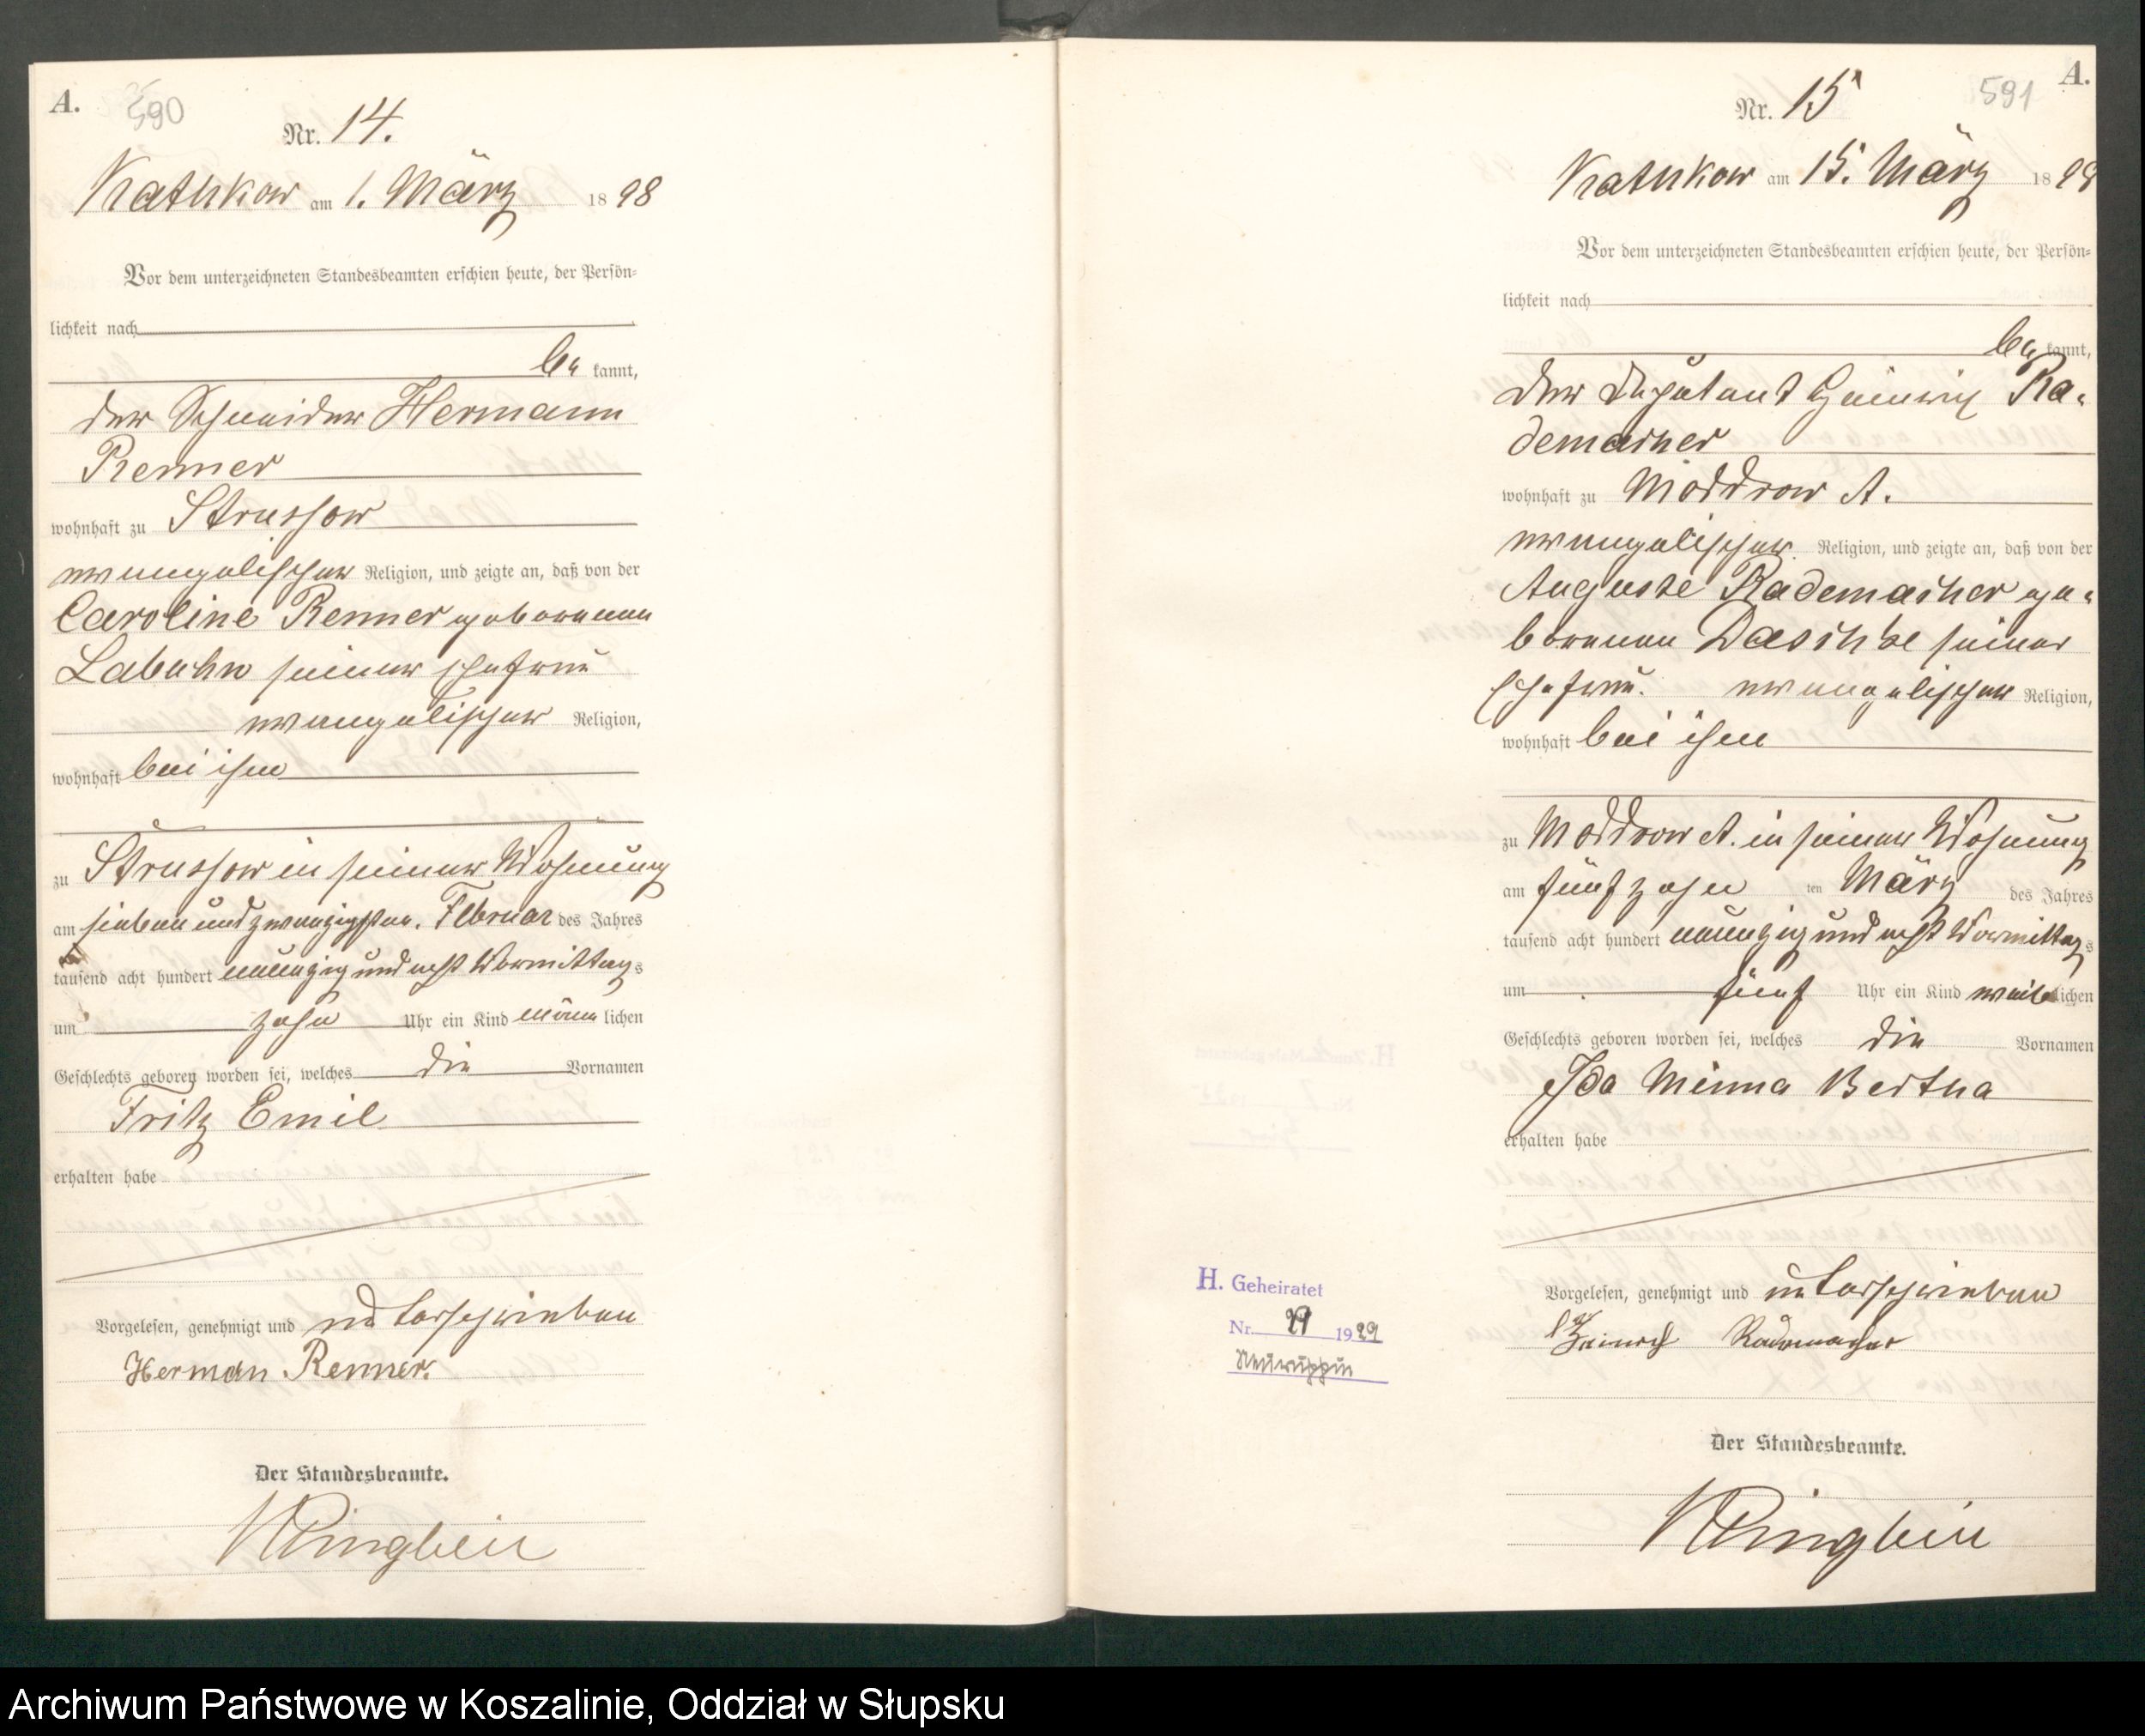 A.
590
Nr. 14.
Kathkow am 1. März 1898
Vor dem unterzeichneten Standesbeamten erschien heute, der Persön-
lichkeit nach
be kannt,
der Schneider Hermann
Renner
wohnhaft zu Strussow
evangelischer Religion, und zeigte an, daß von der
Caroline Renner geborenen
Labuhn seiner Ehefrau
evangelischer Religion,
wohnhaft bei ihm
zu Strussow in seiner Wohnung
am sieben und zwanzigsten Februar des Jahres
tausend acht hundert neunzig und acht Vormittags
um zehn Uhr ein Kind männlichen
Geschlechts geboren worden sei, welches die Vornamen
Fritz Emil
erhalten habe
Vorgelesen, genehmigt und unterschrieben
Herman Renner.
Der Standesbeamte.
Klingbeil
A.
591
Nr. 15
Kathkow am 15. März 1898
Vor dem unterzeichneten Standesbeamten erschien heute, der Persön-
lichkeit nach
be kannt,
der Deputant Heinrich Ra-
demacher
wohnhaft zu Moddrow A.
evangelischer Religion, und zeigte an, daß von der
Auguste Rademacher ge-
borenen Daschke seiner
Ehefrau. evangelischer Religion,
wohnhaft bei ihm
zu Moddrow A. in seiner Wohnung
am fünfzehn ten März des Jahres
tausend acht hundert neunzig und acht Vormittags
um fünf Uhr ein Kind weiblichen
Geschlechts geboren worden sei, welches die Vornamen
Ida Minna Bertha
erhalten habe
Vorgelesen, genehmigt und unterschrieben
Heinrich Rademacher
Der Standesbeamte.
Klingbeil
H. Geheiratet
Nr. 29 1929
Neuruppin
Archiwum Państwowe w Koszalinie, Oddział w Słupsku